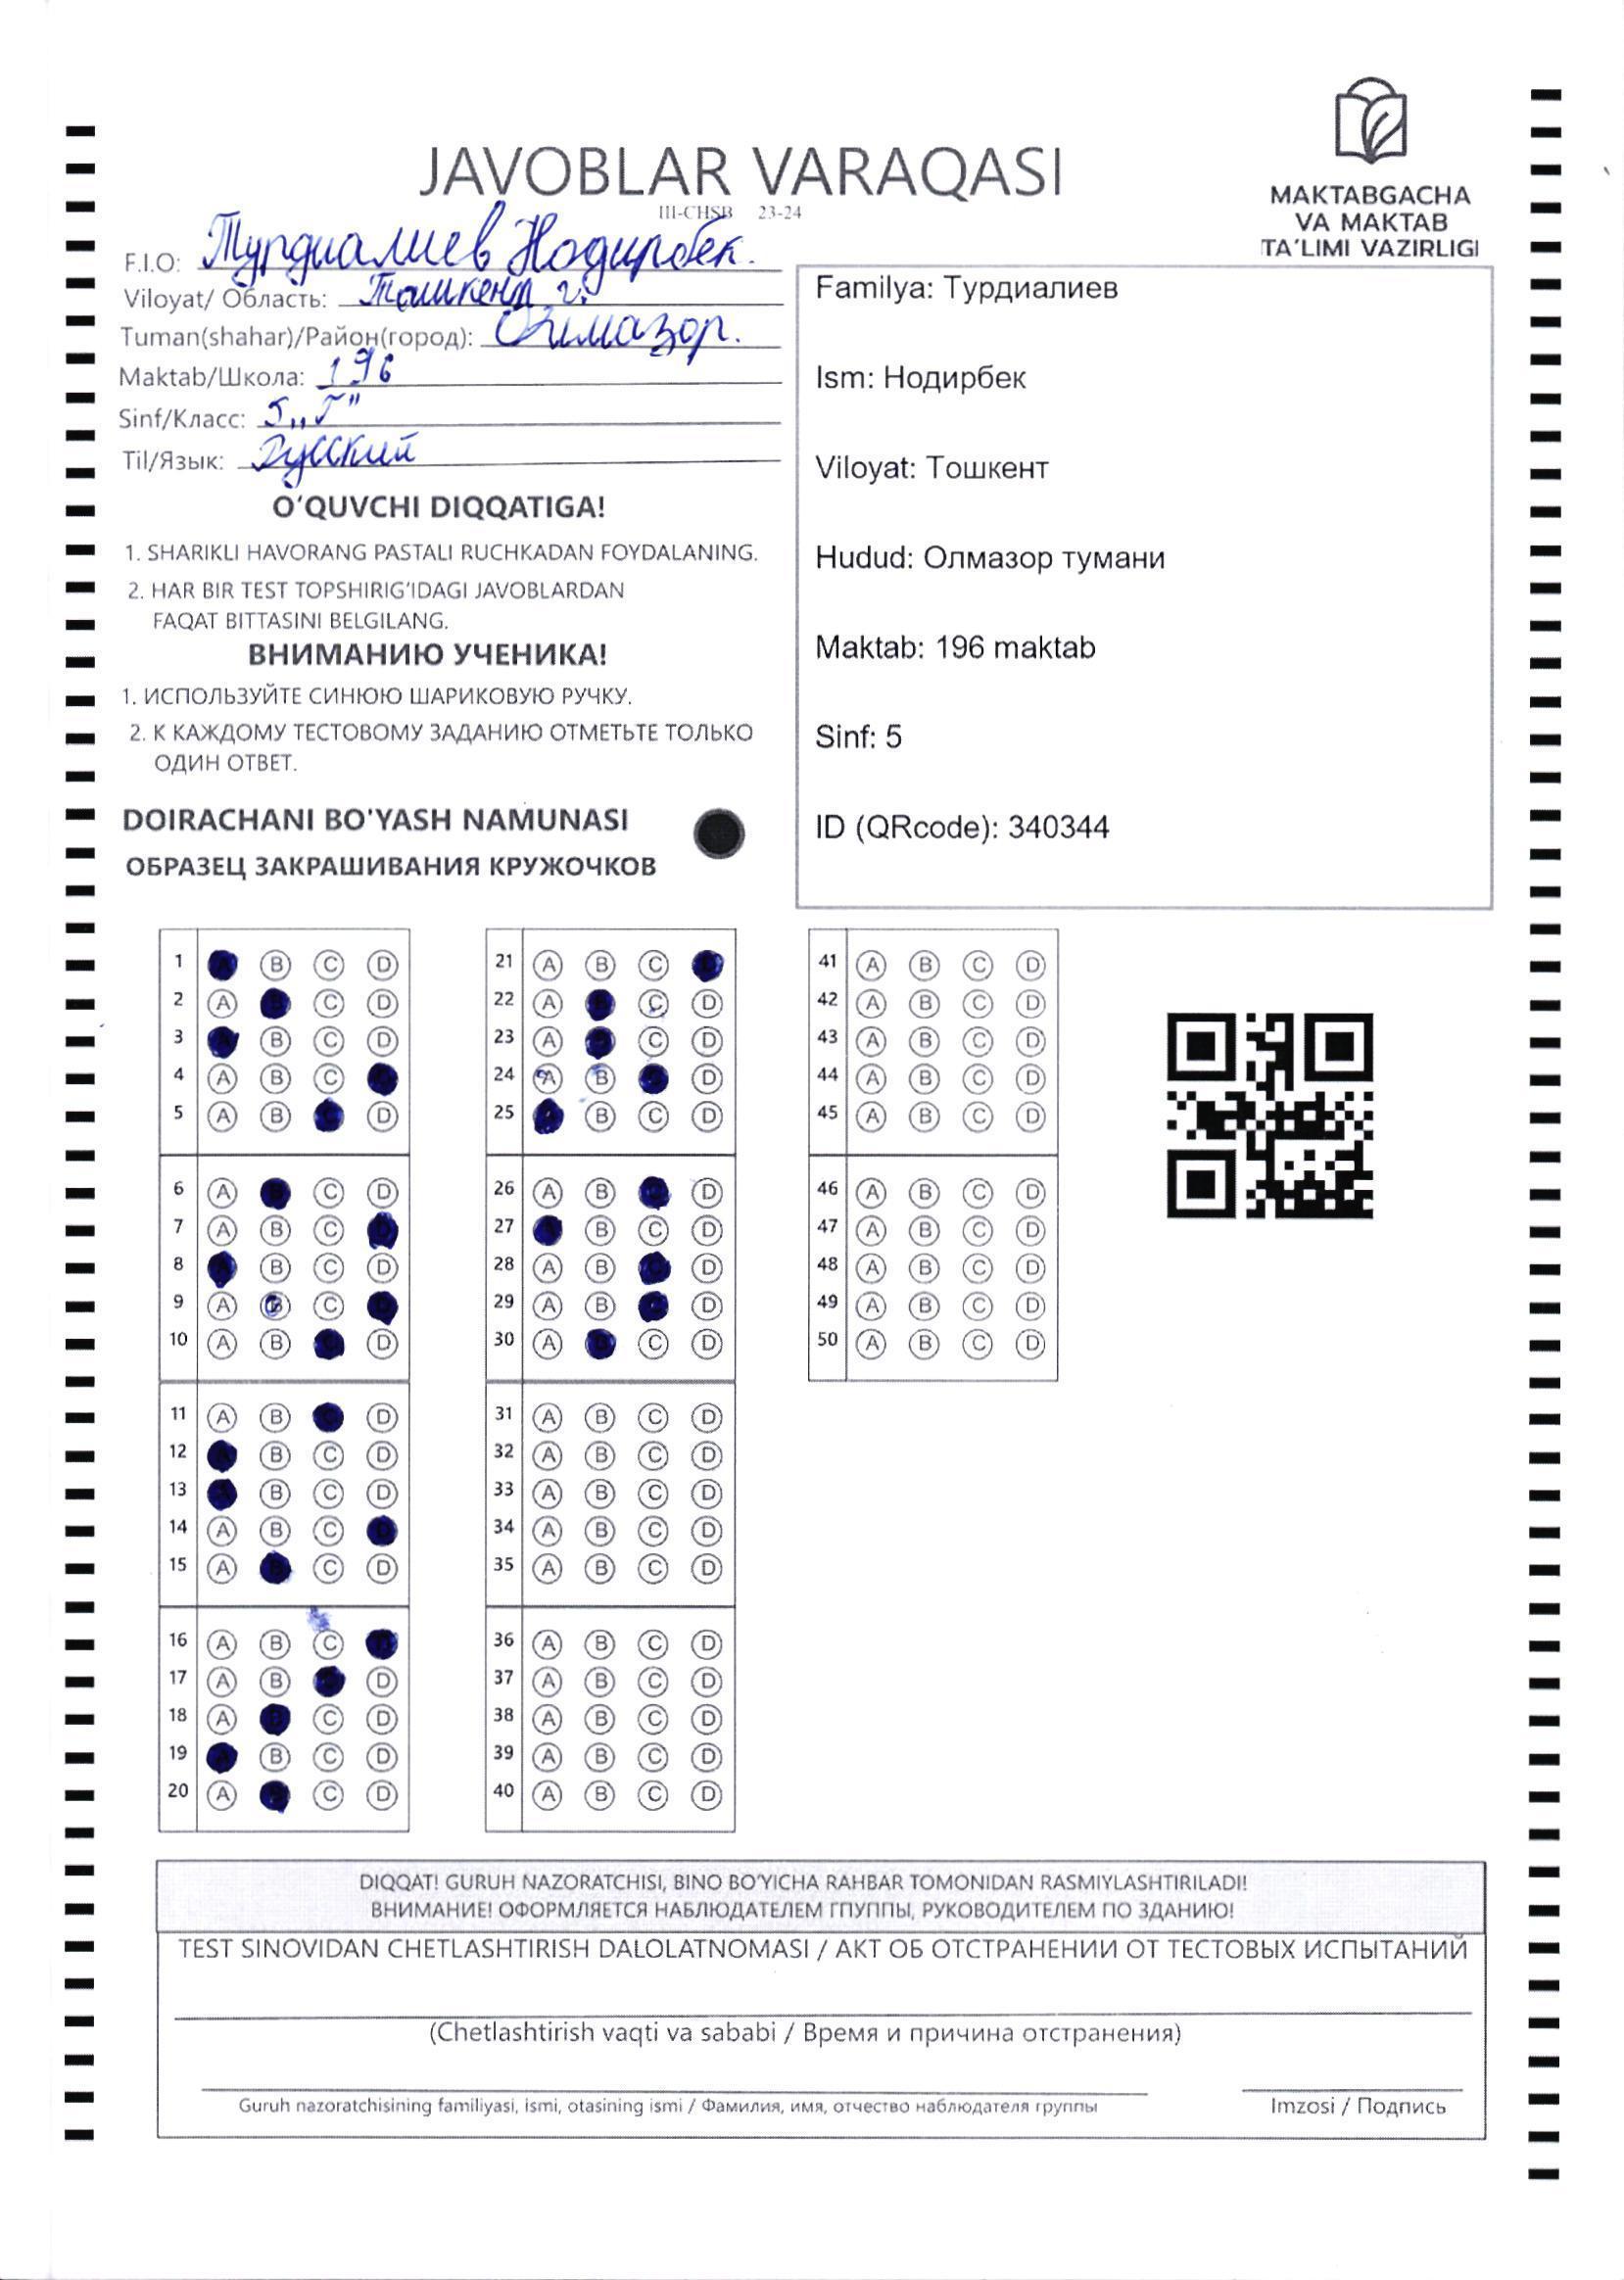 JAVOBLAR VARAQASI
III-CHSB 23-24
MAKTABGACHA
VA MAKTAB
TA'LIMI VAZIRLIGI
F.I.O: Турдиалиев Нодирбек.
Viloyat/ Область: Ташкент г.
Tuman(shahar)/Район(город): Олмазор.
Maktab/Школа: 196
Sinf/Класс: 5 „Г"
Til/Язык: Русский
O‘QUVCHI DIQQATIGA!
1. SHARIKLI HAVORANG PASTALI RUCHKADAN FOYDALANING.
2. HAR BIR TEST TOPSHIRIG‘IDAGI JAVOBLARDAN
FAQAT BITTASINI BELGILANG.
ВНИМАНИЮ УЧЕНИКА!
1. ИСПОЛЬЗУЙТЕ СИНЮЮ ШАРИКОВУЮ РУЧКУ.
2. К КАЖДОМУ ТЕСТОВОМУ ЗАДАНИЮ ОТМЕТЬТЕ ТОЛЬКО
ОДИН ОТВЕТ.
DOIRACHANI BO'YASH NAMUNASI
ОБРАЗЕЦ ЗАКРАШИВАНИЯ КРУЖОЧКОВ
Familya: Турдиалиев
Ism: Нодирбек
Viloyat: Тошкент
Hudud: Олмазор тумани
Maktab: 196 maktab
Sinf: 5
ID (QRcode): 340344
1 B C D
2 A C D
3 B C D
4 A B C
5 A B D
6 A C D
7 A B C
8 B C D
9 A B C
10 A B D
11 A B D
12 B C D
13 B C D
14 A B C
15 A C D
16 A B C
17 A B D
18 A C D
19 B C D
20 A C D
21 A B C
22 A C D
23 A C D
24 A B D
25 B C D
26 A B D
27 B C D
28 A B D
29 A B D
30 A C D
31 A B C D
32 A B C D
33 A B C D
34 A B C D
35 A B C D
36 A B C D
37 A B C D
38 A B C D
39 A B C D
40 A B C D
41 A B C D
42 A B C D
43 A B C D
44 A B C D
45 A B C D
46 A B C D
47 A B C D
48 A B C D
49 A B C D
50 A B C D
DIQQAT! GURUH NAZORATCHISI, BINO BO‘YICHA RAHBAR TOMONIDAN RASMIYLASHTIRILADI!
ВНИМАНИЕ! ОФОРМЛЯЕТСЯ НАБЛЮДАТЕЛЕМ ГПУППЫ, РУКОВОДИТЕЛЕМ ПО ЗДАНИЮ!
TEST SINOVIDAN CHETLASHTIRISH DALOLATNOMASI / АКТ ОБ ОТСТРАНЕНИИ ОТ ТЕСТОВЫХ ИСПЫТАНИЙ
(Chetlashtirish vaqti va sababi / Время и причина отстранения)
Guruh nazoratchisining familiyasi, ismi, otasining ismi / Фамилия, имя, отчество наблюдателя группы
Imzosi / Подпись